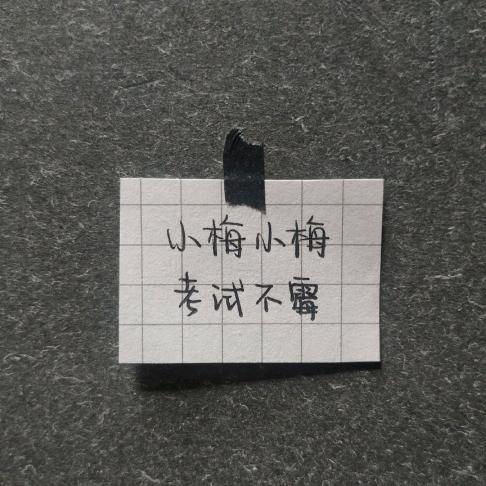 小梅小梅
考试不霉